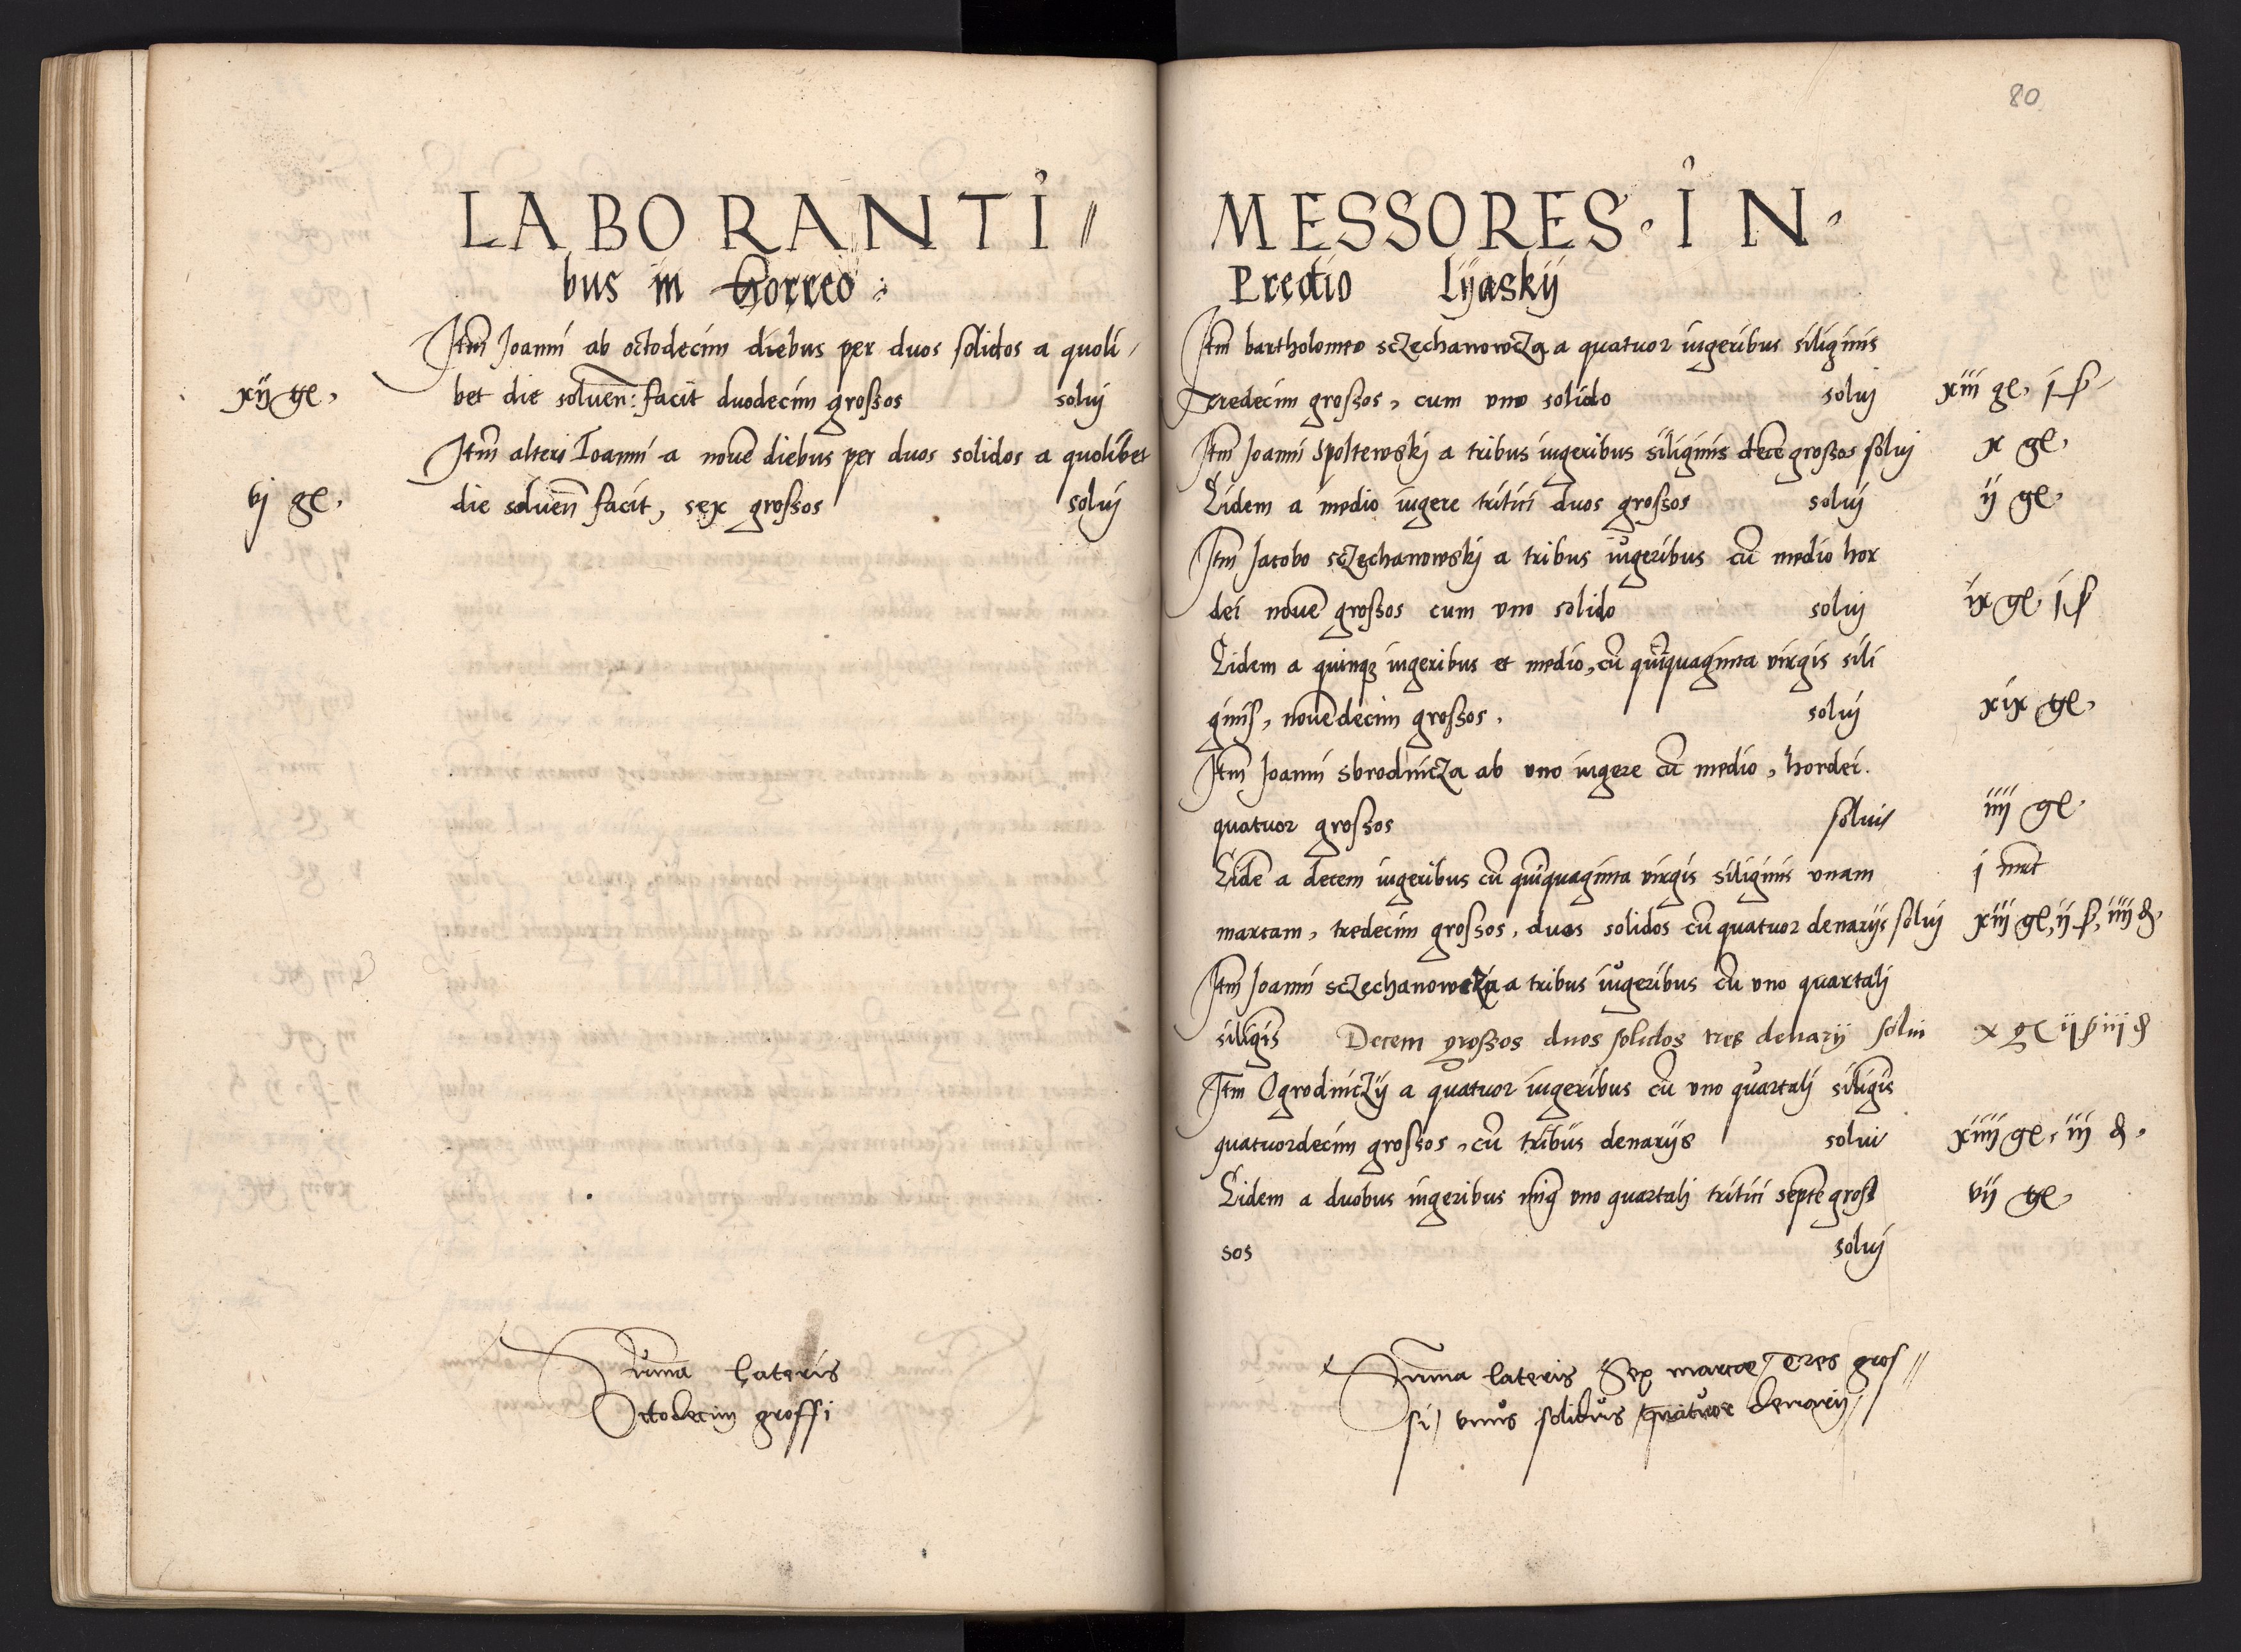 LABORANTI//
bus in horreo
Itm Joanni ab octodecim diebus per duos solidos a quoli/
xij gl. bet die soluen: facit duodecim grossos soluj
Itm alteri Ioanni a noue diebus per duos solidos a quolibet
vj gl. die soluen facit, sex grossos soluj
Suma Lateris
Octodecim grossi
80
MESSORES · IN ·
Predio lÿaskÿ
Itm bartholomeo sczechanowcza a quatuor iugeribus siliginis
Tredecim grossos, cum uno solido soluj xiii gl. j ſ
Itm Joanni Spoltewskj a tribus iugeribus siliginis dece grossos soluj x gl.
Eidem a medio iugere tritici duos grossos soluj ij gl.
Itm Jacobo sczechanowskj a tribus iugeribus cu medio hor
dei noue grossos cum uno solido soluj ix gl. j ſ
Eidem a quinqz iugeribus et medio, cu quiquaginta virgis sili
ginis, nouedecim grossos. soluj xix gl.
Itm Joanni Sbrodnicza ab uno iugere cu medio, hordei.
quatuor grossos solui iiij gl.
Eide a decem iugeribus cu quiquaginta virgis siliginis unam j mrt
marcam, tredecim grossos, duos solidos cu quatuor denarijs soluj xiij gl, ij ſ, iiij ₰.
Itm Joanni sczechanowcza a tribus iugeribus cu uno quartalj
siligis Decem grossos duos solidos tres denarij solui x gl ij ſ iij ₰
Itm Ogrodniczÿ a quatuor iugeribus cu uno quartalj siligis
quatuordecim grossos, cu tribus denarijs solui xiiij gl, iij ₰.
Eidem a duobus iugeribus miq uno quartalj tritici septe gros vij gl.
sos soluj
Suma lateris Sex marce/ Tres gros//
si/ unus solidus/ quatuor denarij/